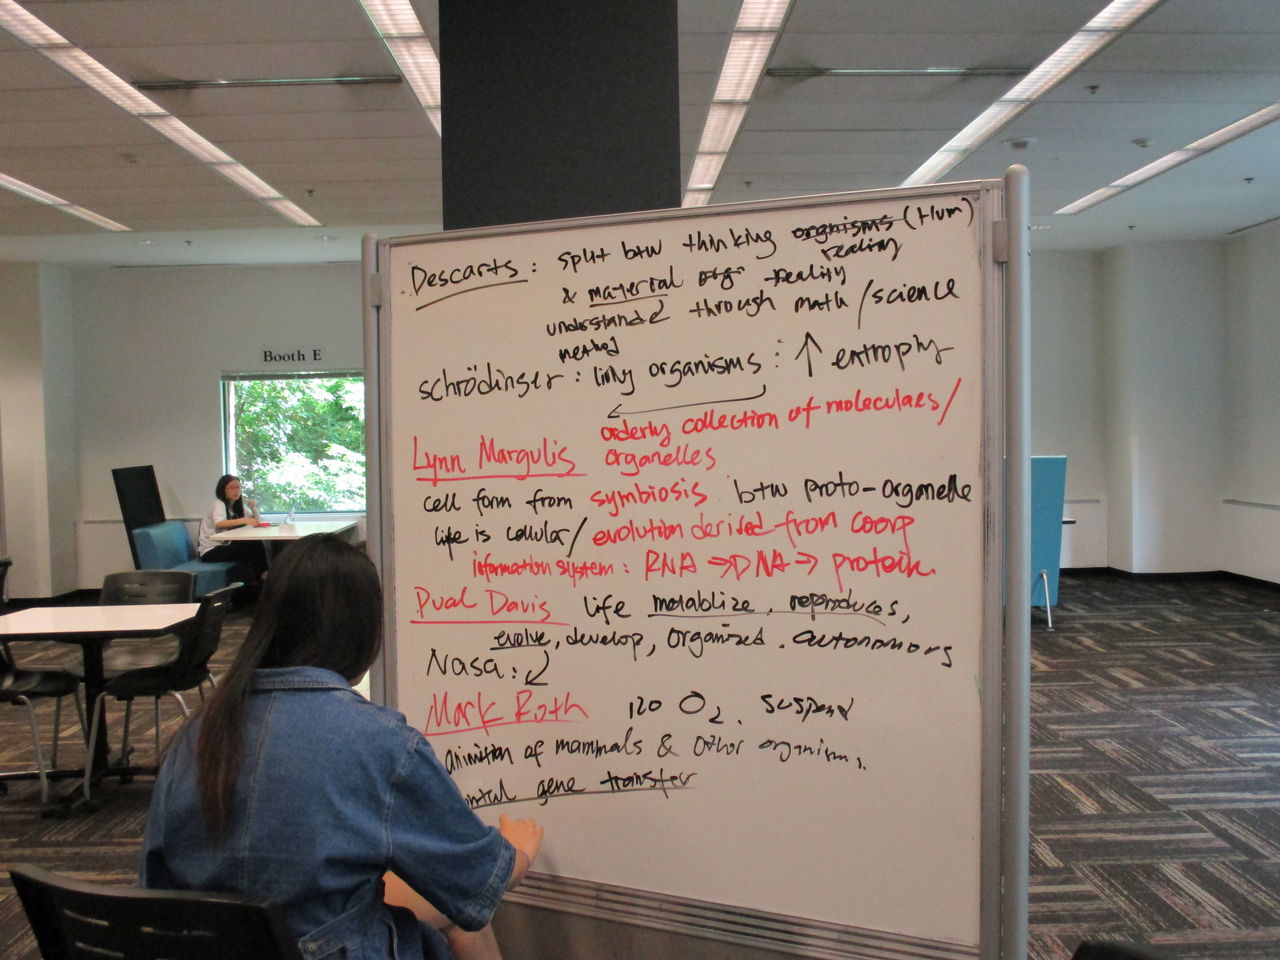 Booth E
Descarts: split btw thinking organisms (Hum)
reality
& material org. reality
understande through math/science
method
schrödinger: living organisms: ↑ entrophy
←
orderly collection of moleculaes/
Lynn Margulis organelles
cell form from symbiosis btw proto-organelle
life is cellular/evolution derived from coorp
information system: RNA → DNA → protein.
Pual Davis life metablize. reproduces,
evolve, develop, organized. autonomors
Nasa: ↙
Mark Roth no O2. suspend
animtion of mammals & other organisms.
gene transfer